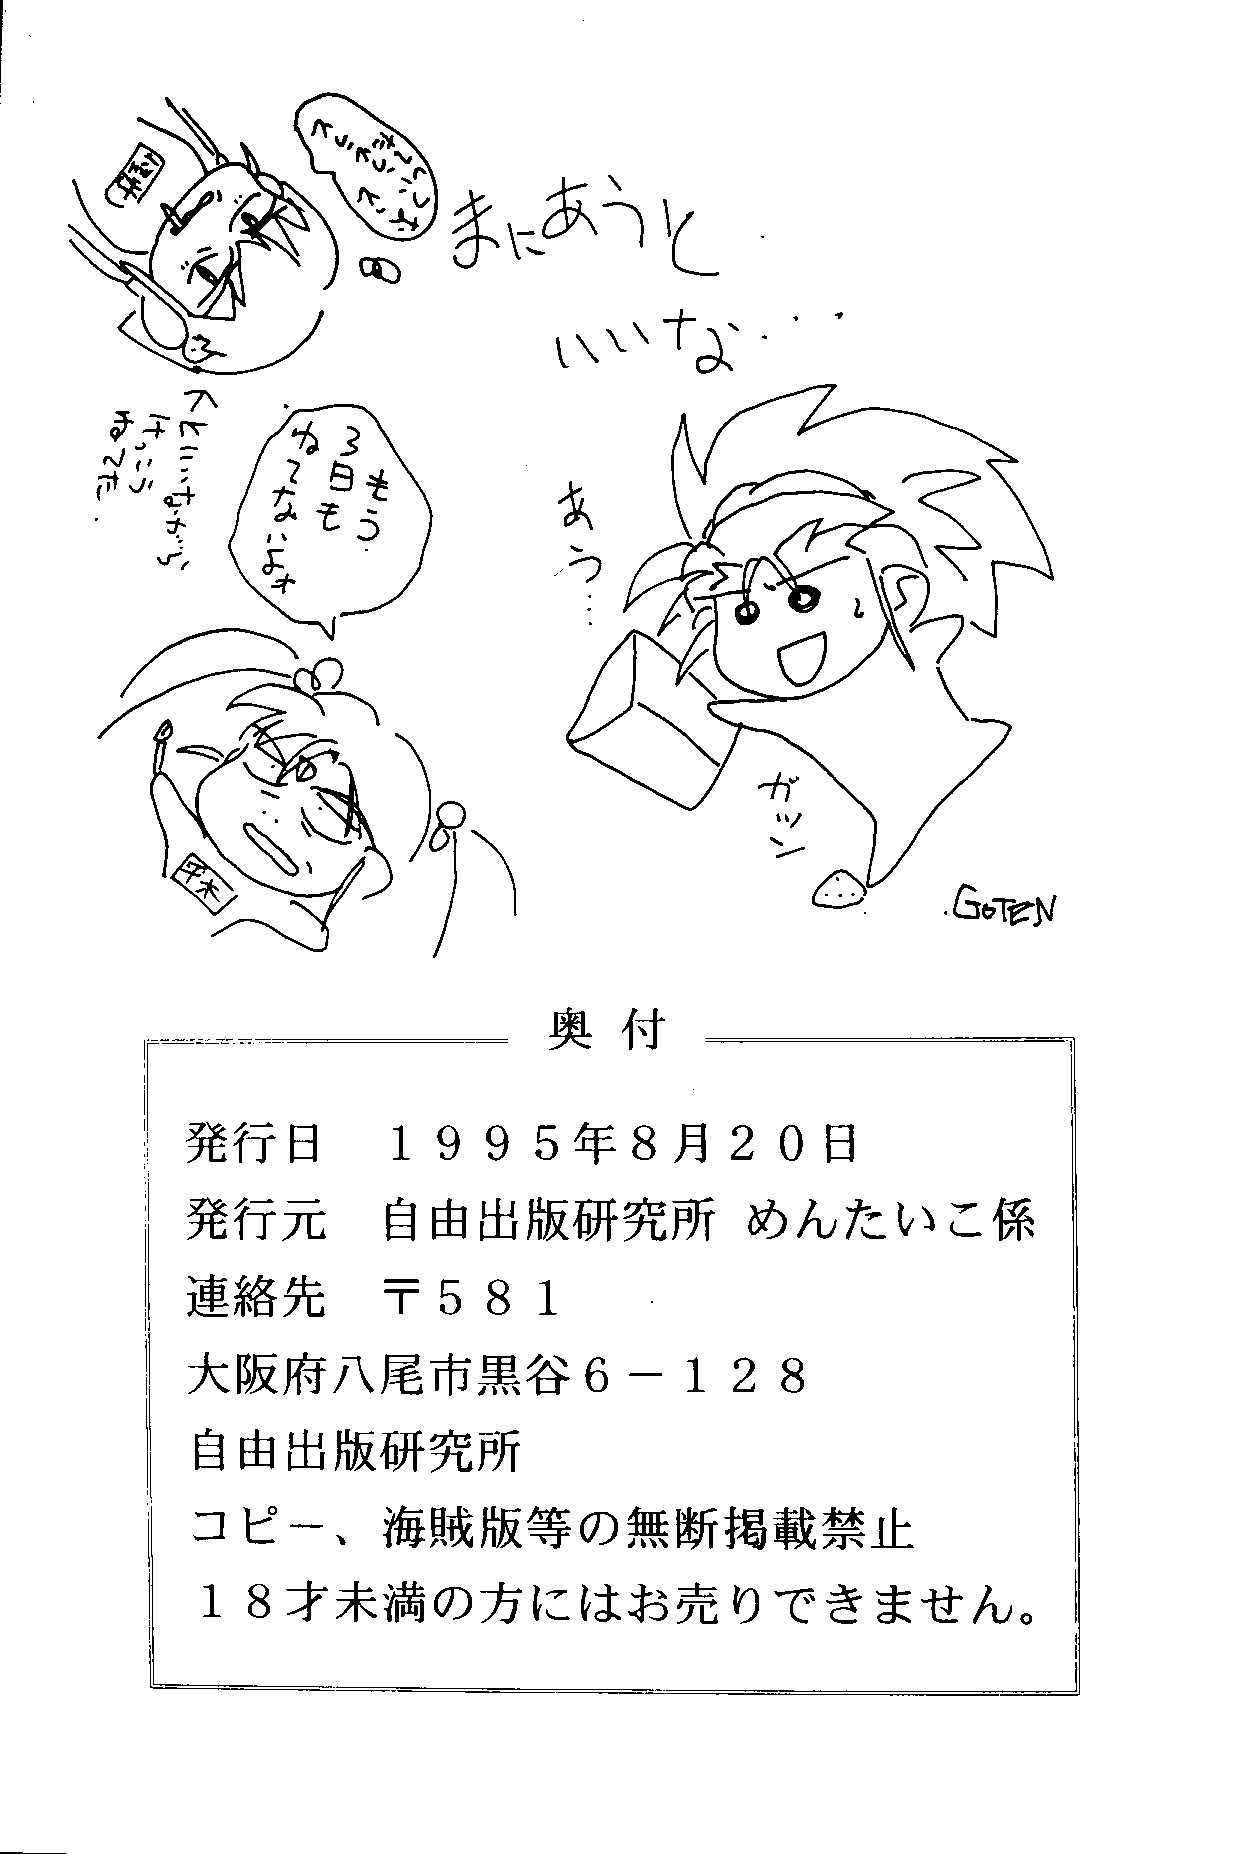 まにあうと
いいな・・・
あう・・・
ガツン
GOTEN
もう
3日も
ねてないよォ
といいながら
けっこう
ねてた.
平木
奥付
発行日　１９９５年８月２０日
発行元　自由出版研究所 めんたいこ係
連絡先　〒５８１
大阪府八尾市黒谷６－１２８
自由出版研究所
コピー、海賊版等の無断掲載禁止
１８才未満の方にはお売りできません。